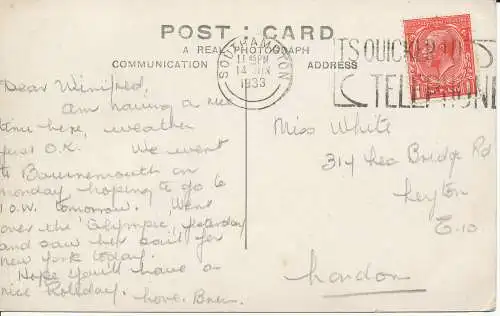 POST : CARD
A REAL PHOTOGRAPH
COMMUNICATION ADDRESS
SOUTHAMPTON
14 JUN
1933
ITS QUICKER TO
TELEPHONE
Dear Winifred,
Am having a nice
time here, weather
just O.K. We went
to Bournemouth on
Monday, hoping to go to
I.O.W. tomorrow. Went
over the "Olympic" yesterday
and saw her sail for
New York today.
Hope you'll have a
nice Holiday. Love.
Miss White
314 Lea Bridge Rd
Leyton
E.10
London